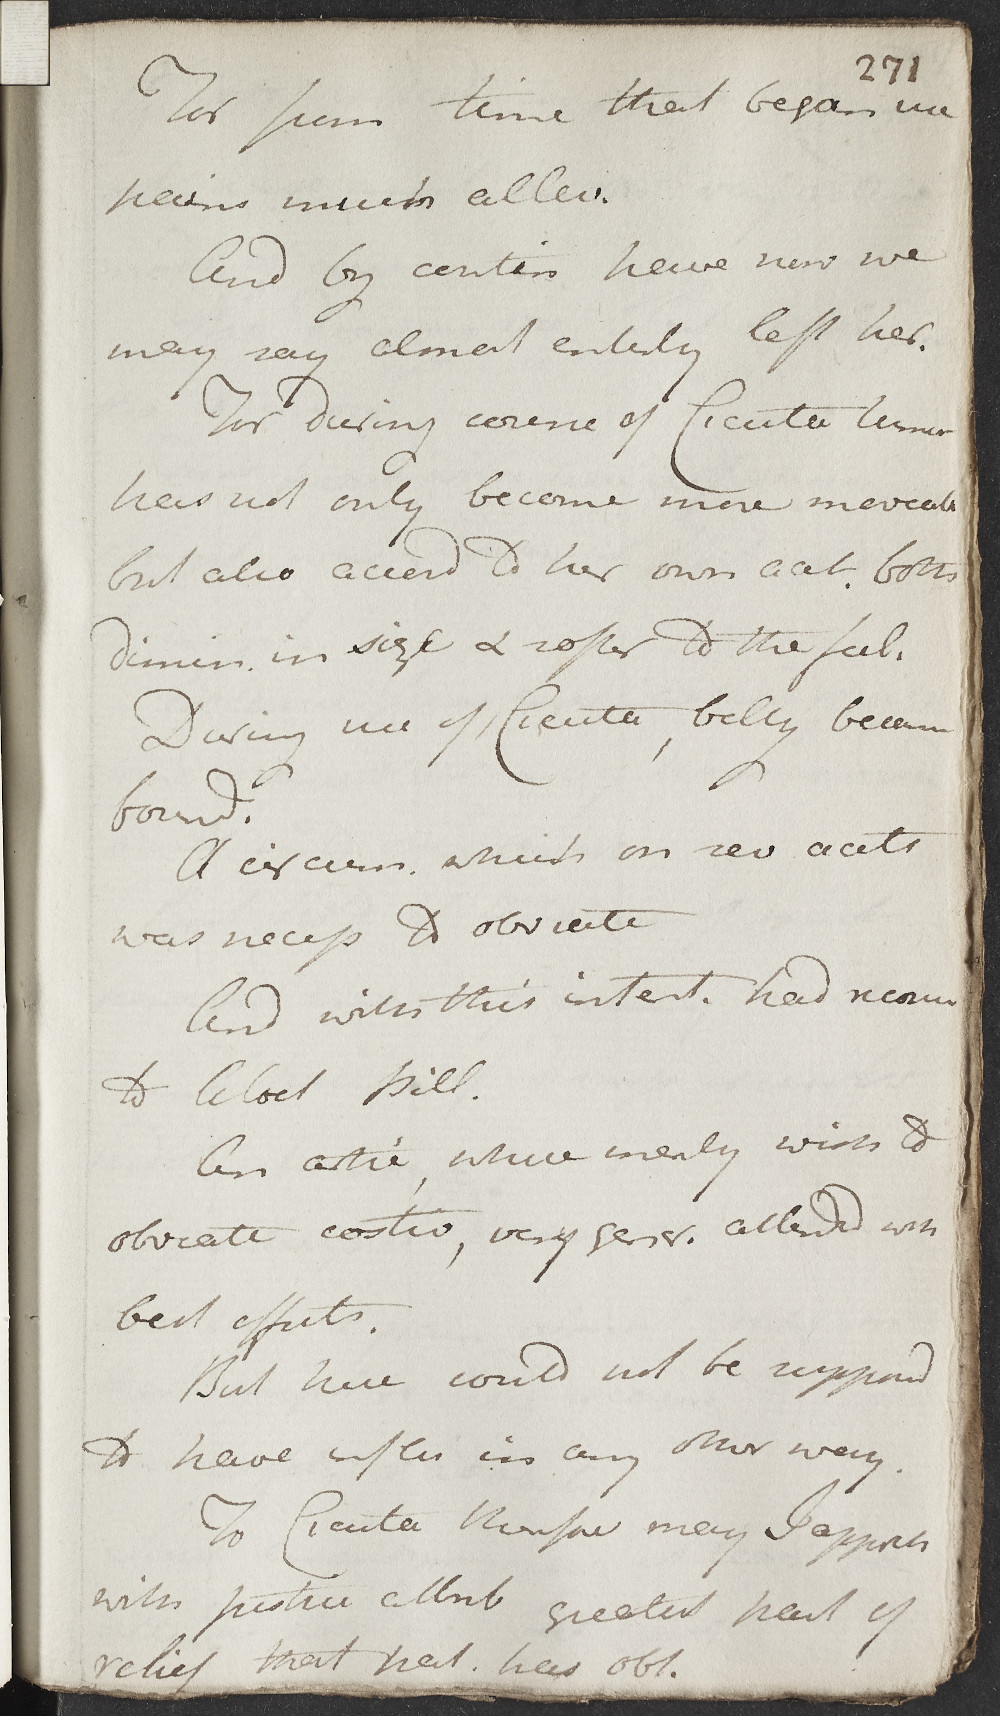 271
For from time that began use
pains much allev.
And by contin have now we
may say almost enterly left her.
For during course of Cicuta tumor
has not only become more moveab
but also accord to her own acct. both
dimin. in size & softer to the feel.
During use of Cicuta, belly becam
bound.
A circum. which on sev accts
was necess to obviate
And with this intent. had recour
to Aloet Pill.
An artic, where merly wish to
obviate costiv, very gener. attended with
best effects.
But here could not be supposed
to have influ in any other way.
To Cicuta therefore may I appreh
with justice attrib greatest part of
relief that pat. has obt.